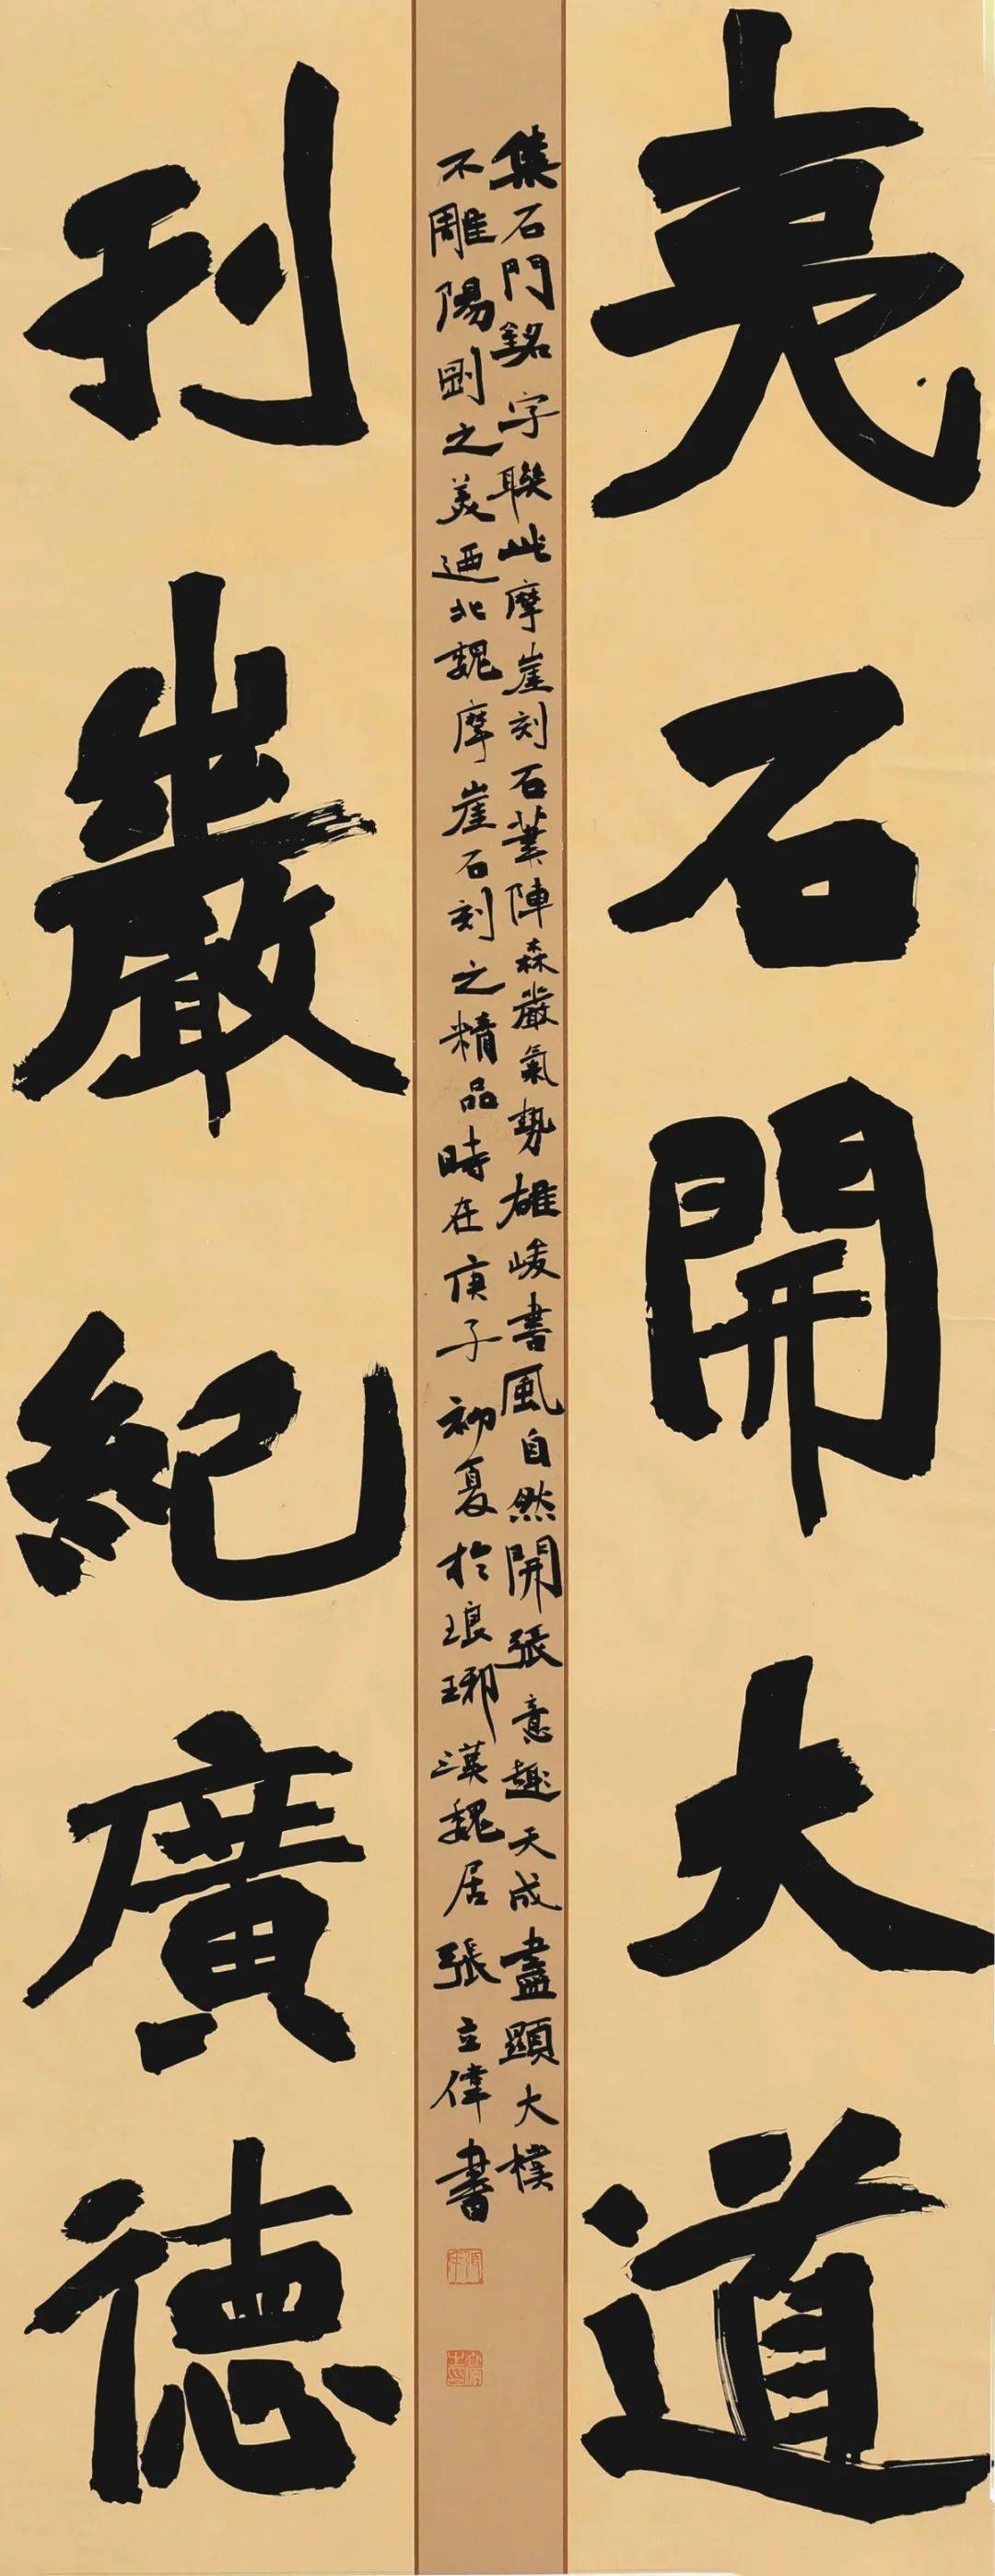 夷石開大道
集石門銘字聯此摩崖刻石葉陣森嚴氣勢雄峻書風自然開張意趣天成盡顯大樸
不雕陽剛之美迺北魏摩崖石刻之精品時在庚子初夏於琅琊漢魏居張立偉書
刊巖紀廣德